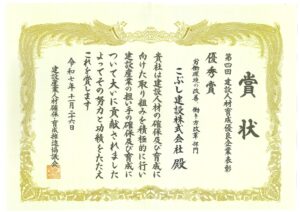 賞状
第四回 建設人材育成優良企業表彰
優秀賞
労働環境の改善・働き方改革部門
こぶし建設株式会社 殿
貴社は建設人材の確保及び育成に
向けた取り組みを積極的に行い
建設産業の担い手の確保及び育成に
ついて大いに貢献されました
よってその努力と功績をたたえ
これを賞します
令和七年十一月二十六日
建設産業人材確保・育成推進協議会